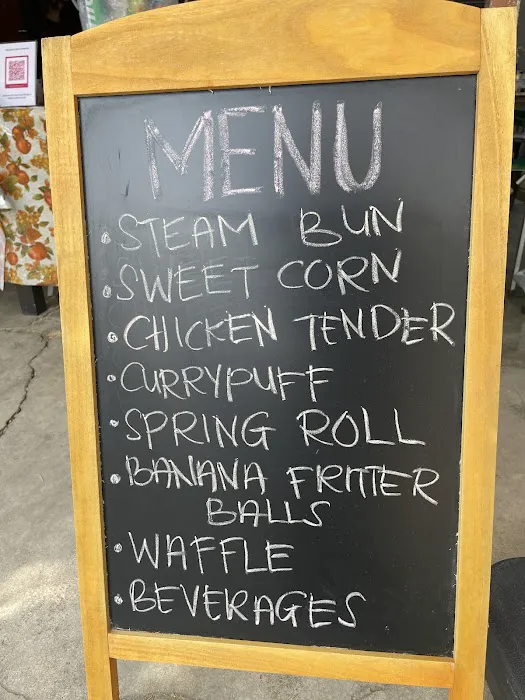 MENU
• STEAM BUN
• SWEET CORN
• CHICKEN TENDER
• CURRYPUFF
• SPRING ROLL
• BANANA FRITTER
BALLS
• WAFFLE
• BEVERAGES